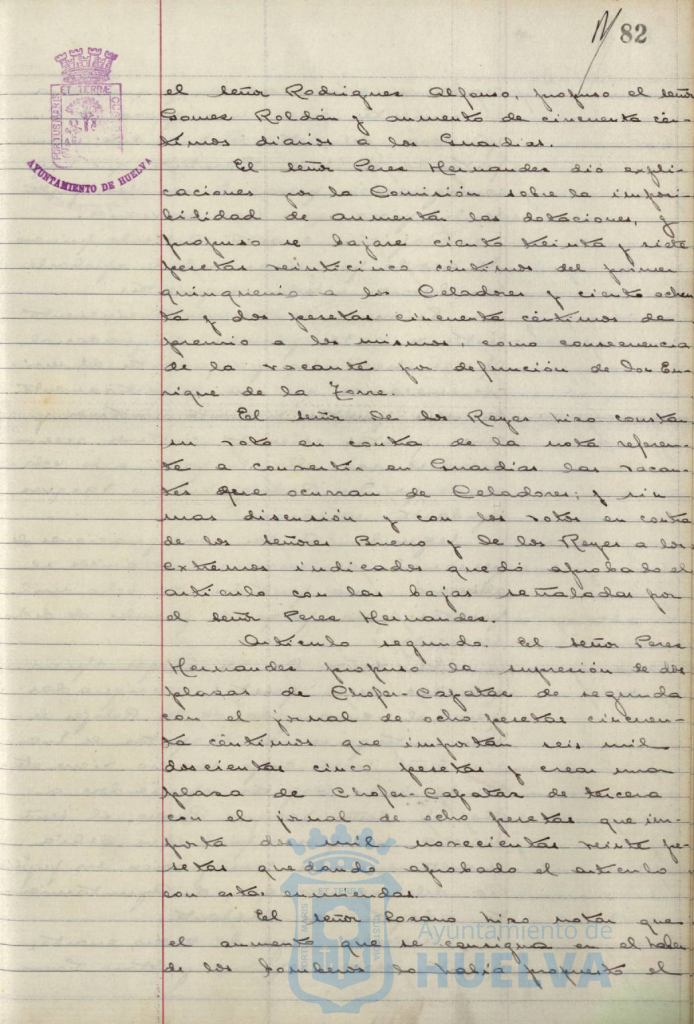 N 82
ET TERRAE
PORTUS MARIS
CUSTODIA
AYUNTAMIENTO DE HUELVA
el señor Rodriguez Alfonso, propuso el señor
Gomez Roldán y aumento de cincuenta cén-
timos diarios a los Guardias.
El señor Perez Hernandez dió expli-
caciones por la Comisión sobre la imposi-
bilidad de aumentar las dotaciones, y
propuso se bajase ciento treinta y siete
pesetas veinticinco céntimos del primer
quinquenio a los Celadores y ciento ochen-
ta y dos pesetas cincuenta céntimos de
premio a los mismos, como consecuencia
de la vacante por defunción de don En-
rique de la Torre.
El señor de los Reyes hizo constar
su voto en contra de la nota referen-
te a convertir en Guardias las vacan-
tes que ocurran de Celadores; y sin
mas discusión y con los votos en contra
de los señores Bueno y de los Reyes a los
extremos indicados quedó aprobado el
artículo con las bajas señaladas por
el señor Perez Hernandez.
Artículo segundo. El señor Perez
Hernandez propuso la supresión de dos
plazas de Chofer-Capataz de segunda
con el jornal de ocho pesetas cincuen-
ta céntimos que importan seis mil
doscientas cinco pesetas y crear una
plaza de Chofer-Capataz de tercera
con el jornal de ocho pesetas que im-
porta dos mil novecientas veinte pe-
setas quedando aprobado el artículo
con estas enmiendas.
El señor Lozano hizo notar que
el aumento que se consigna en el haber
de los bomberos lo había propuesto el
Ayuntamiento de
HUELVA